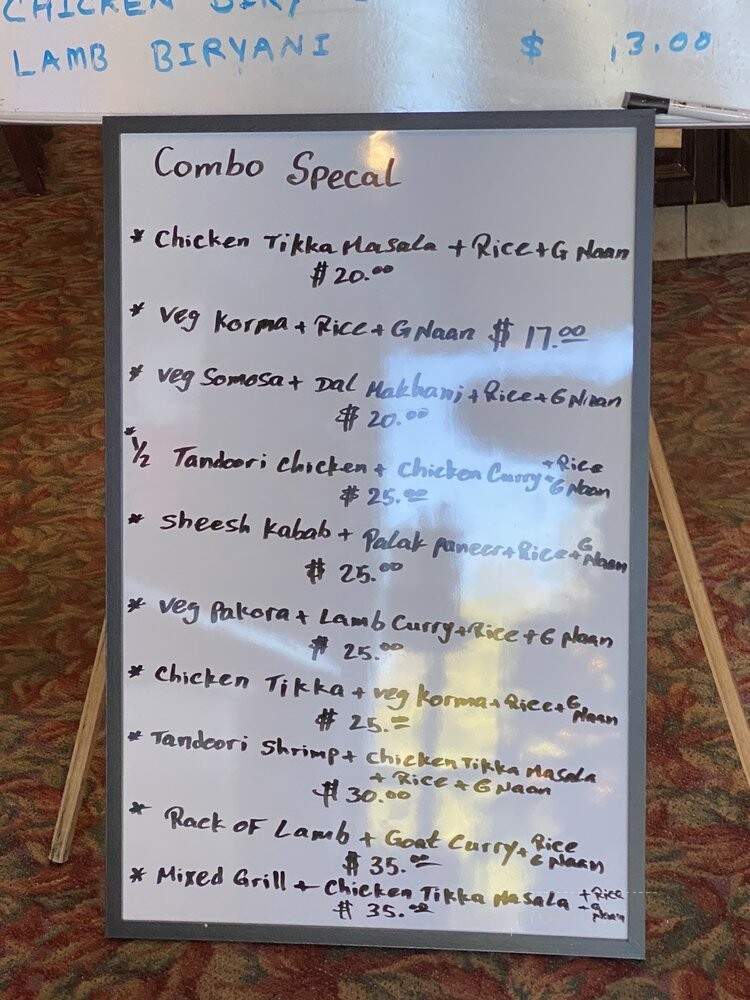 CHICKEN
LAMB BIRYANI $ 13.00
Combo Specal
* Chicken Tikka Masala + Rice + G Naan
$ 20.00
* Veg Korma + Rice + G Naan $ 17.00
* Veg Somosa + Dal Makhani + Rice + G Naan
$ 20.00
* 1/2 Tandoori Chicken + Chicken Curry + Rice
+ G Naan
$ 25.00
* Sheesh Kabab + Palak Paneer + Rice + G Naan
$ 25.00
* Veg Pakora + Lamb Curry + Rice + G Naan
$ 25.00
* Chicken Tikka + Veg Korma + Rice + G Naan
$ 25.=
* Tandoori Shrimp + Chicken Tikka Masala
+ Rice + G Naan
$ 30.00
* Rack OF Lamb + Goat Curry + Rice
G Naan
$ 35.00
* Mixed Grill + Chicken Tikka Masala + Rice
+ G Naan
$ 35.00